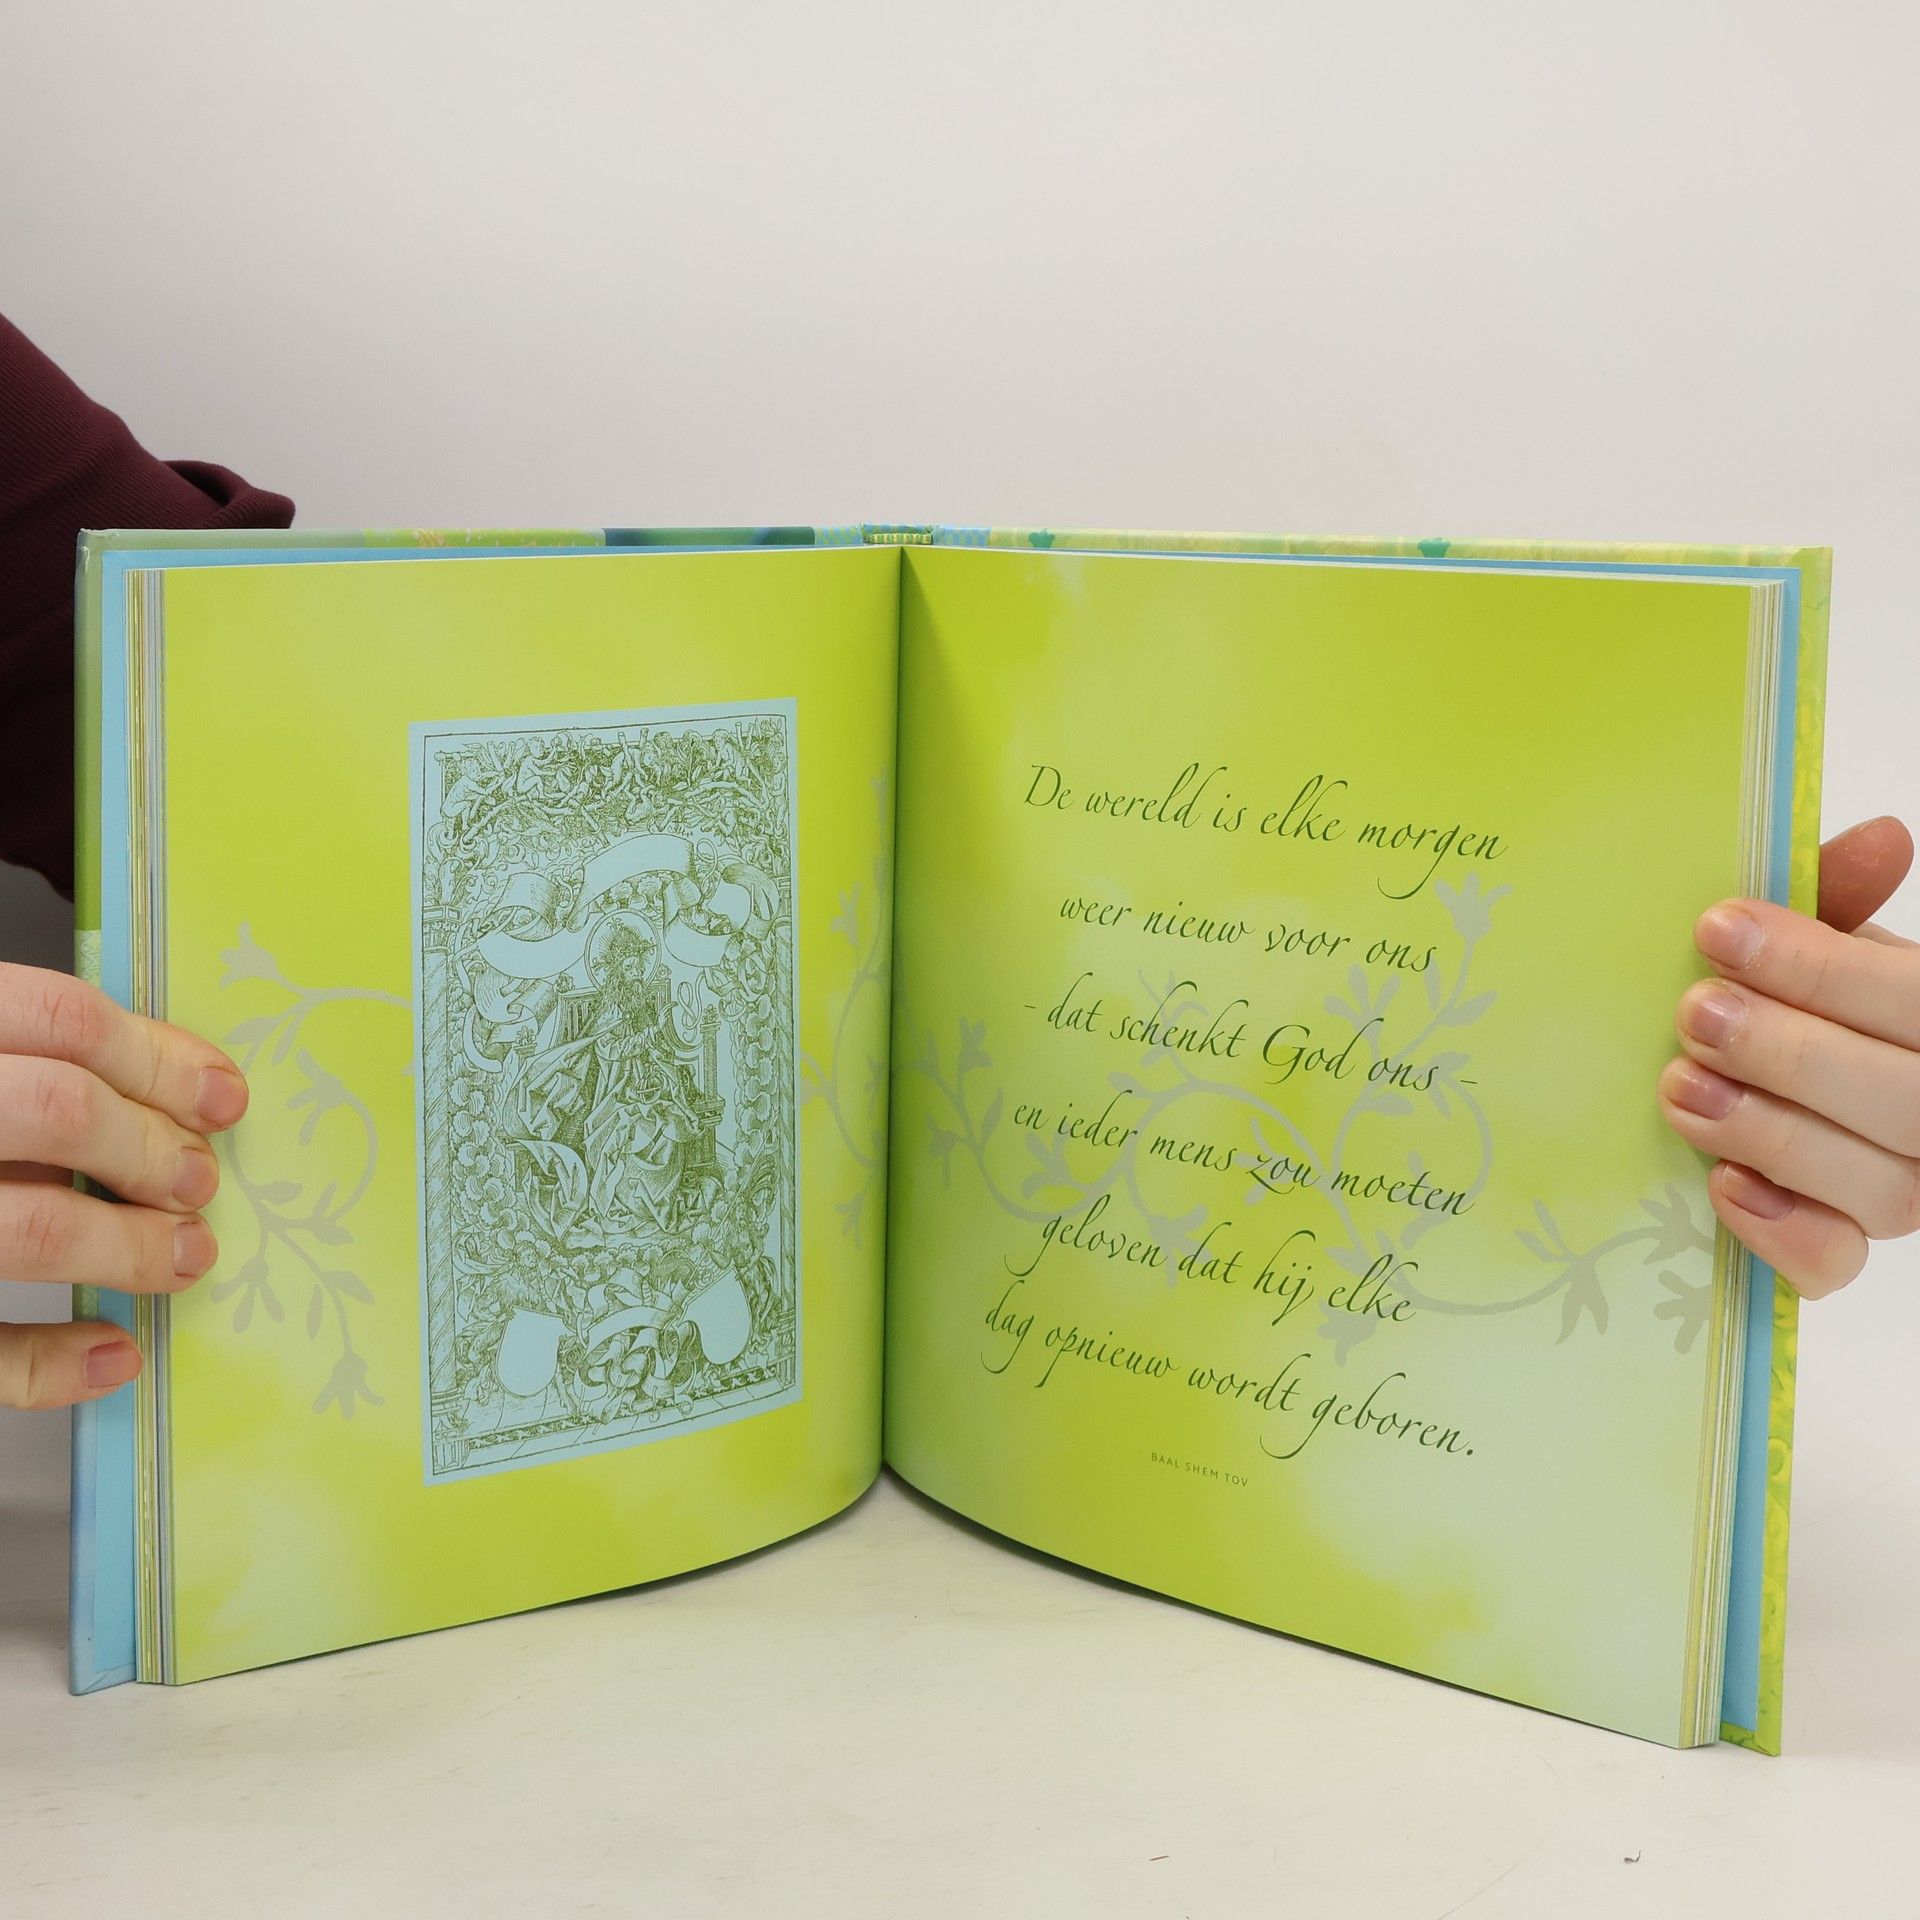 De wereld is elke morgen
weer nieuw voor ons
- dat schenkt God ons -
en ieder mens zou moeten
geloven dat hij elke
dag opnieuw wordt geboren.
BAAL SHEM TOV